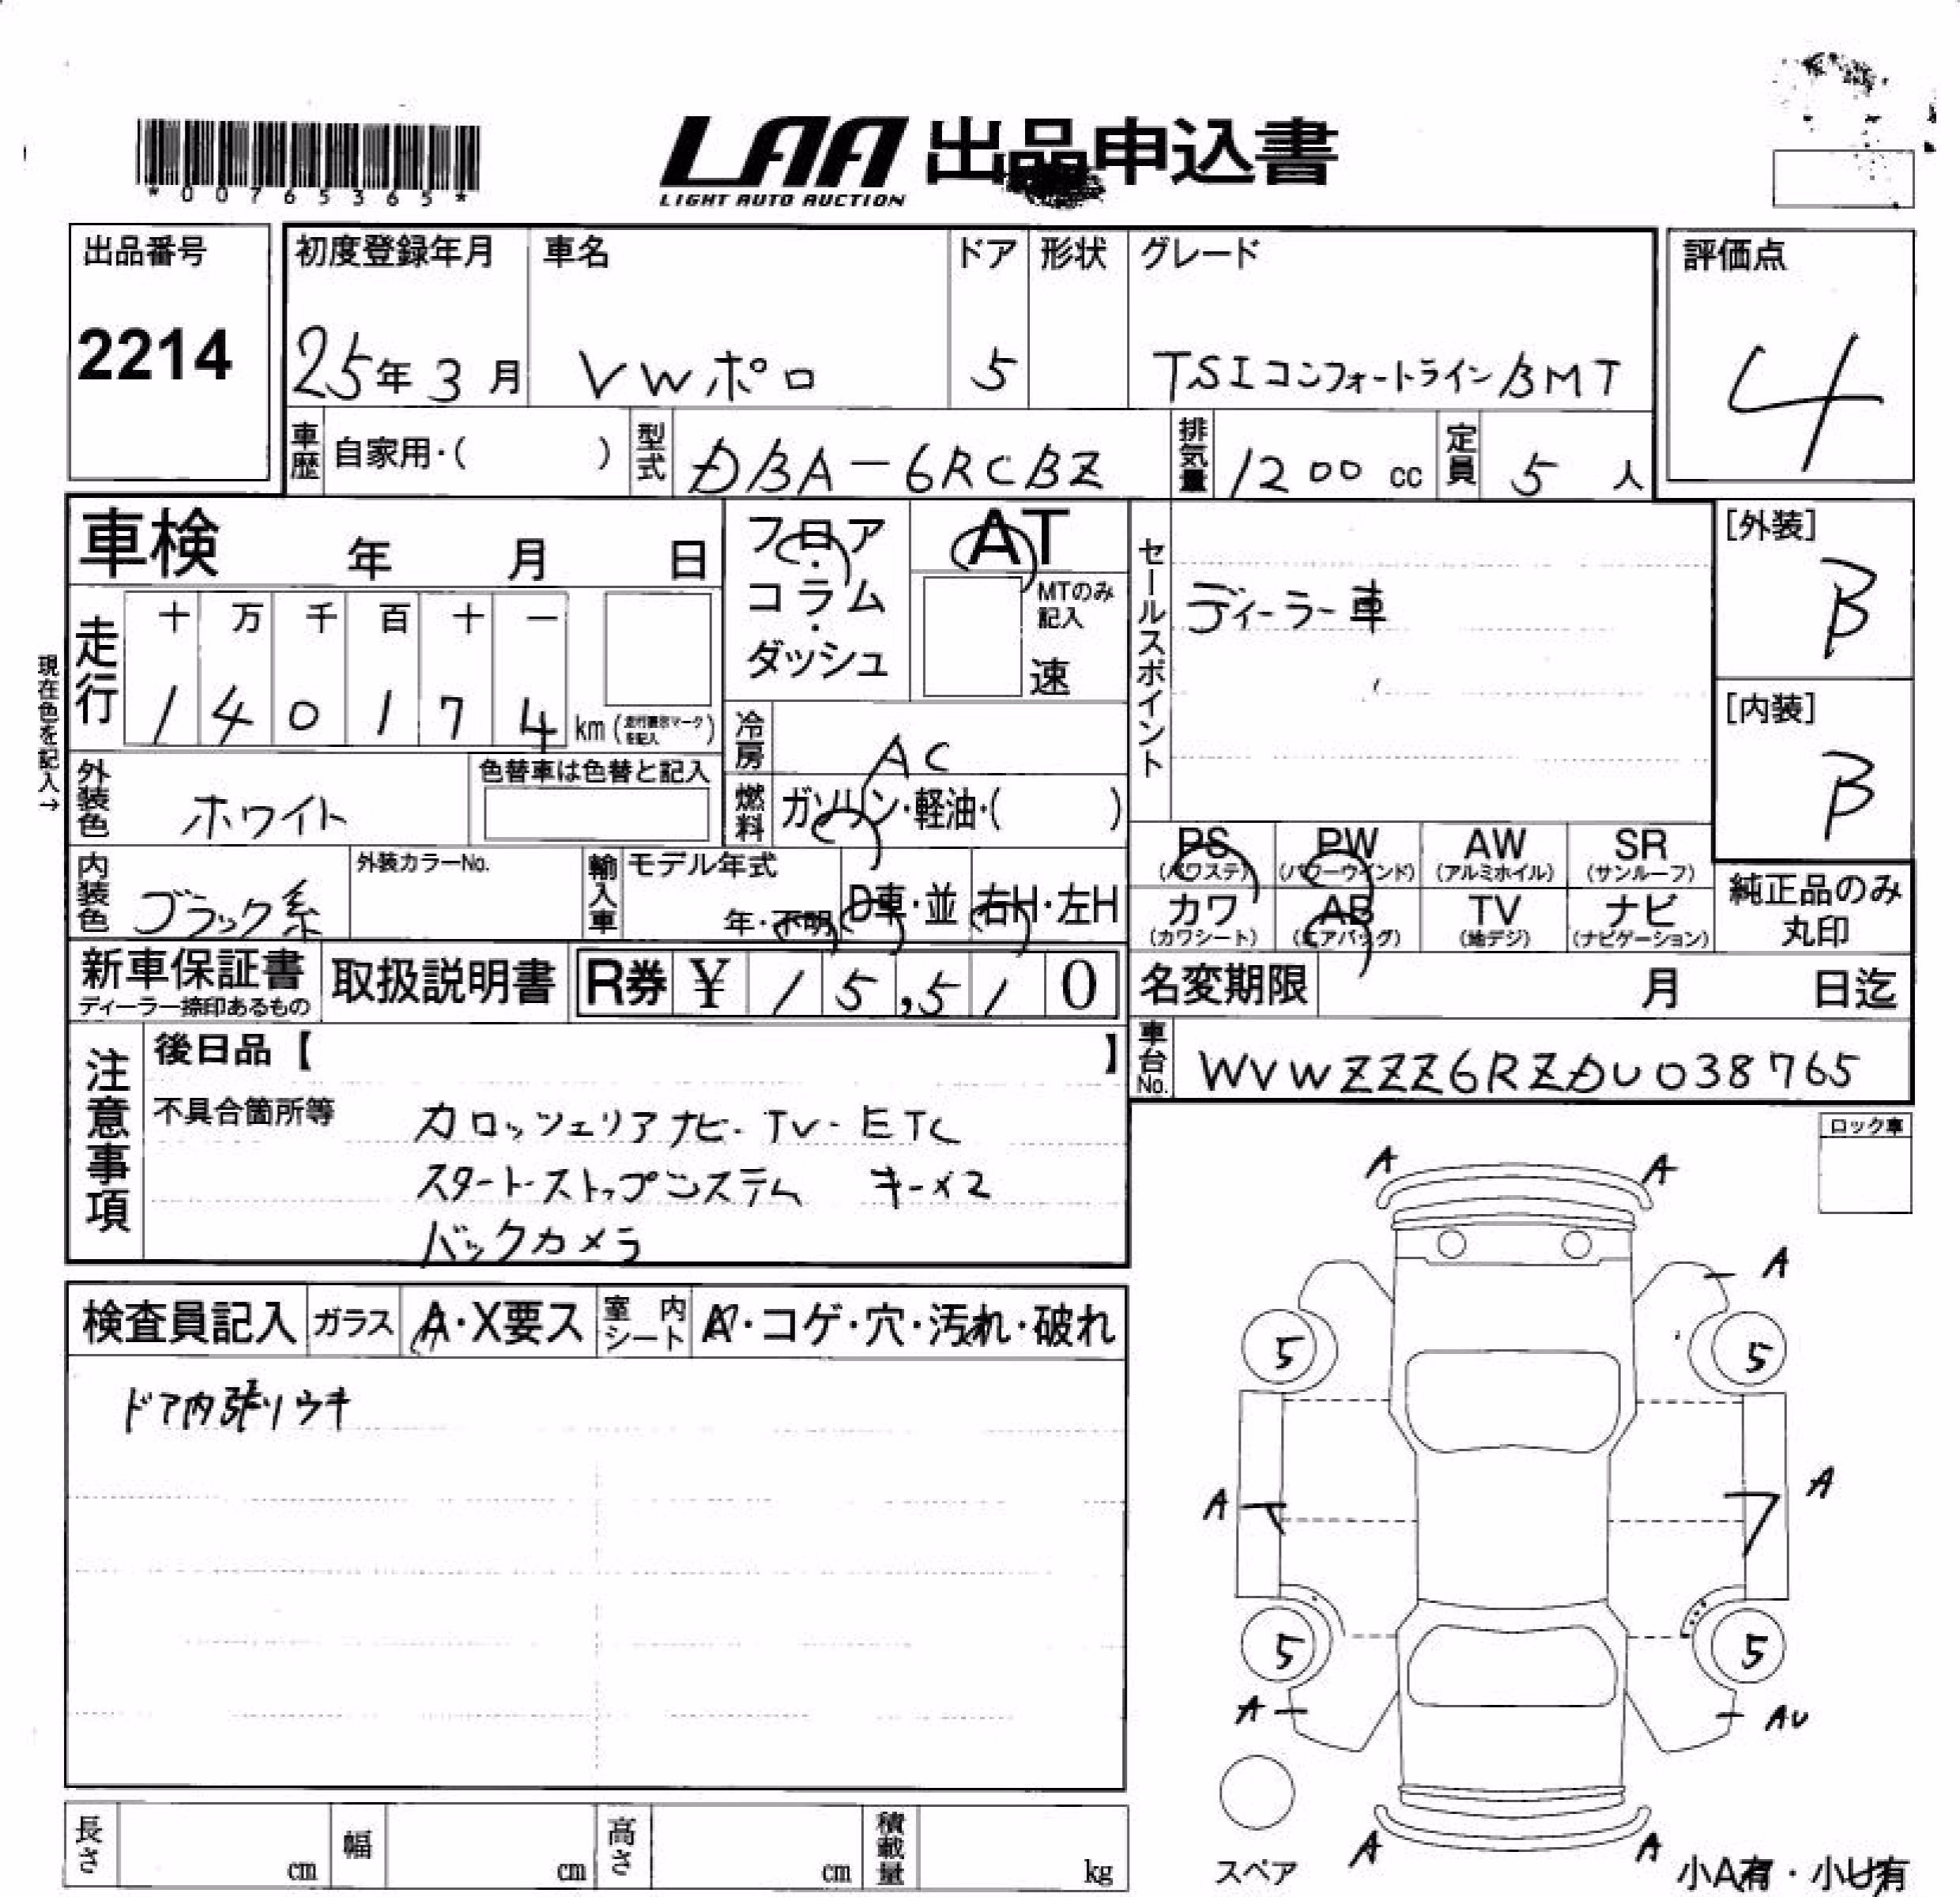 *00765365*
LAA 出品申込書
LIGHT AUTO AUCTION
出品番号 初度登録年月 車名 ドア 形状 グレード 評価点
2214 25年 3月 VWポロ 5 TSIコンフォートラインBMT 4
車歴 自家用・( ) 型式 DBA-6RCBZ 排気量 1200 cc 定員 5 人
車検 年 月 日 フロア・コラム・ダッシュ AT
MTのみ記入
速
セールスポイント
ディーラー車
[外装]
B
[内装]
B
現在色を記入→
走行 十 万 千 百 十 一
1 4 0 1 7 4 km (走行表示マークを記入)
冷房 AC
外装色 ホワイト 色替車は色替と記入
燃料 ガソリン・軽油・( )
内装色 ブラック系 外装カラーNo. 輸入車 モデル年式
年・不明 D車・並 右H・左H
PS PW AW SR
(パワステ) (パワーウインド) (アルミホイル) (サンルーフ)
カワ AB TV ナビ
(カワシート) (エアバッグ) (地デジ) (ナビゲーション)
純正品のみ
丸印
新車保証書 取扱説明書 R券 ¥ 15,510
ディーラー捺印あるもの
名変期限 月 日迄
車台No. WVWZZZ6RZDU038765
注意事項
後日品【 】
不具合箇所等 カロッツェリアナビ・TV・ETC
スタート・ストップシステム キー×2
バックカメラ
ロック車
検査員記入 ガラス A・X要ス 室内シート A・コゲ・穴・汚れ・破れ
ドア内張りウキ
A A
A
5 5
A A
5 5
A AU
スペア
A A
小A有・小U有
長さ cm 幅 cm 高さ cm 積載量 kg